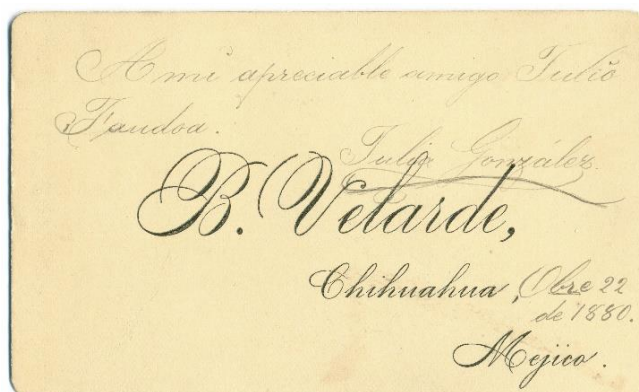 A mi apreciable amigo Julio
Faudoa.
Julia González
B. Velarde,
Chihuahua, Obre 22
de 1880.
Mejico.